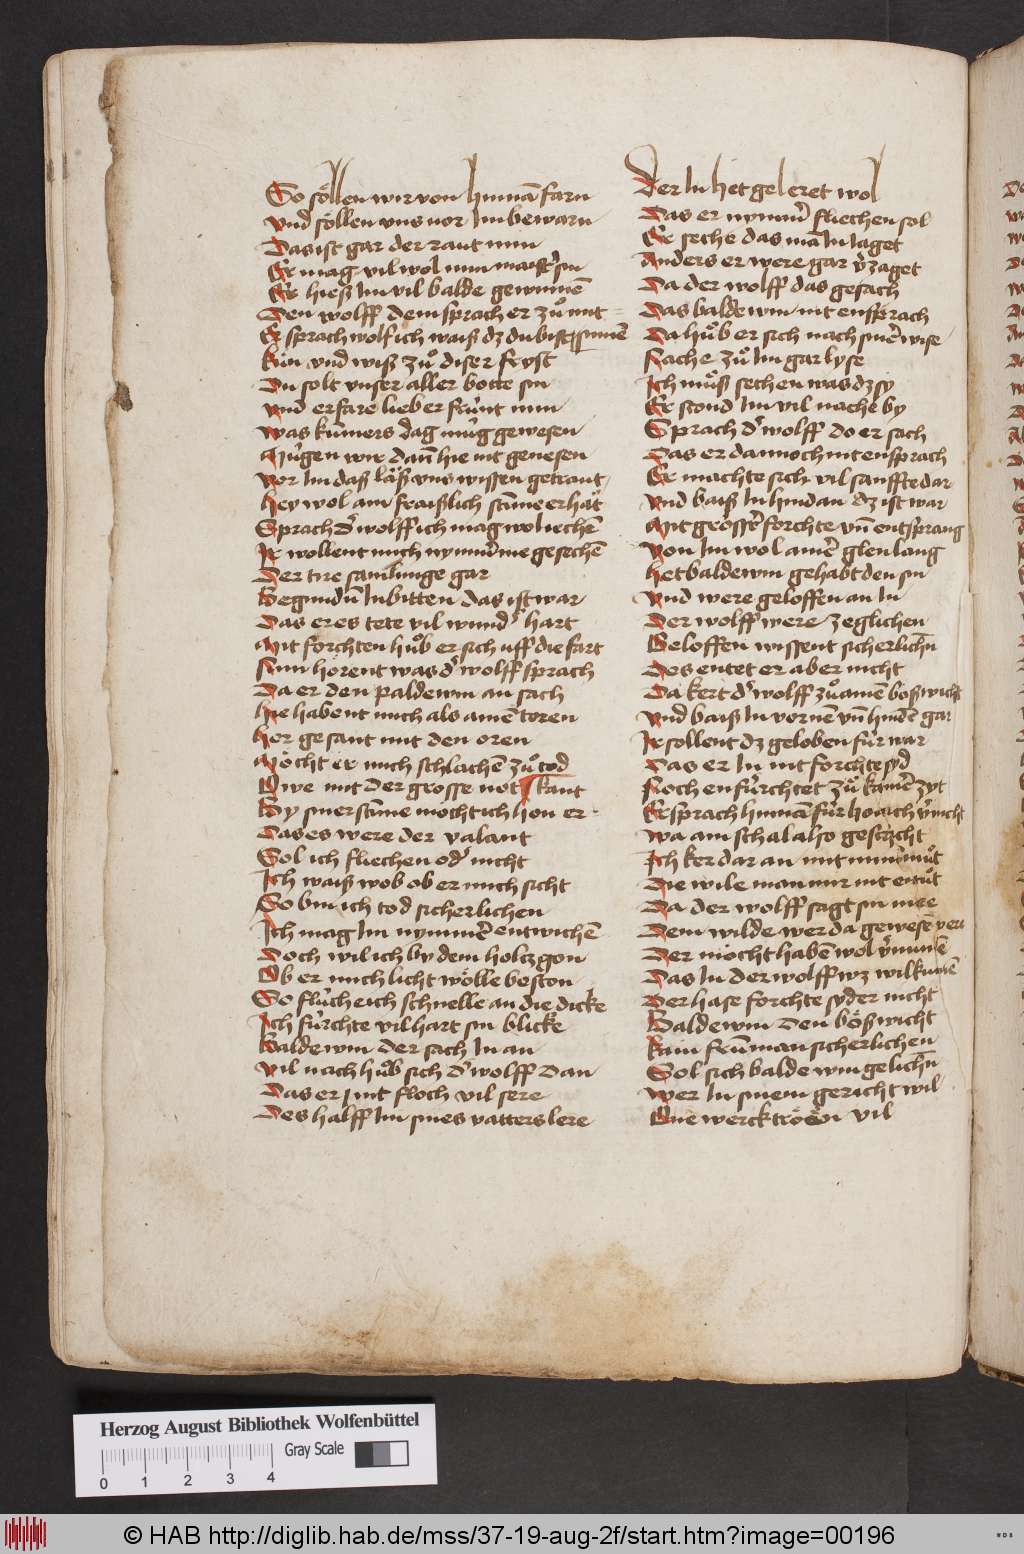 So söllen wir von hinnā farn
vnd söllen vns vor Im bewarn
Das ist gar der raut min
Er mag vil wol min maistˀ sin
Er hieß Im vil balde gewinnē
Den wolff dem sprach er zuͦ mit
Er sprach wolf ich waiß dz du bist sinnē
kün vnd wiß zuͦ diser fryst
Du solt vnser aller botte sin
vnd erfare lieber frünt min
was kumers dag müg gewesen
Mügen wir dañ hie nit genesen
vor Im daß läß vns wissen getraut
hey wol ain fraißlich stīme er hät
Sprach dˀ wolff ich mag wol iechē
Ir wollent mich nymmˀ me gesechē
Der tire samlunge gar
Begundū In bitten das ist war
Das er es tete vil wundˀ hart
Mit forchten huͦb er sich uff die fart
Nun hörent was dˀ wolff sprach
Da er den paldewin an sach
hie habent mich als ainē toren
her gesant mit den oren
Möcht er mich schlachē zuͦ tod
Owe mit der grosse not kant
By siner stīme möcht ich hon er
Das es were der valant
Sol ich fliechen odˀ nicht
Ich waiß wol ob er mich sicht
So bin ich tod sicherlichen
Ich mag Im nymmˀ entwichē
Doch wil ich by dem holcz gon
Ob er mich licht wölle beston
So flüch eich schnelle an die dicke
Ich fürchte vil hart sin blicke
Baldewin der sach In an
vil nach huͦb sich dˀ wolff dan
Das er nit floch vil sere
Des halff Im sines vatters lere
Der In het geleret wol
Das er nymmˀ fliechen sol
Er seche das mā In Iaget
Anders er were gar vˀzaget
Da der wolff das gesach
Das baldewin nit ensprach
Da huͦb er sich nach sinˀ wise
Nache zuͦ Im gar lyse
Ich muͦß sechen was dz sy
Er stond Im vil nache by
Sprach dˀ wolff do er sach
Das er dannoch nit ensprach
Er machte sich vil sanffte dar
vnd baiß In hindan dz ist war
Mit grossˀ forchte vñ entsprang
von Im wol ainˀ glen lang
het baldewin gehabt den sin
vnd were geloffen an In
Der wolff were zeglichen
Geloffen wissent sicherlichn̄
Des entet er aber nicht
Da kert dˀ wolff zuͦ ainē bößwicht
vnd baiß In vornē vñ hindē gar
Ir sollent dz geloben für war
Das er In nit forchte syd
Noch enfürchtet zuͦ kainˀ zyt
Er sprach hinnā für ho ich vˀnicht
wa ain schal also geschicht
Ich ker dar an nit minˀ muͦt
Die wile man mir nit entuͦt
Da der wolff sagt sin mee
Dem wilde wer da gewesē
Der möcht habē wol vˀnumē
Das In der wolff wz wilkumē
Der hase forchte syder nicht
Baldewin den bößwicht
kain frū man sicherlichen
Sol sich baldewin gelichn̄
wer In sinem gericht wil
One werck tröen vil
Herzog August Bibliothek Wolfenbüttel
Gray Scale
0 1 2 3 4
© HAB http://diglib.hab.de/mss/37-19-aug-2f/start.htm?image=00196